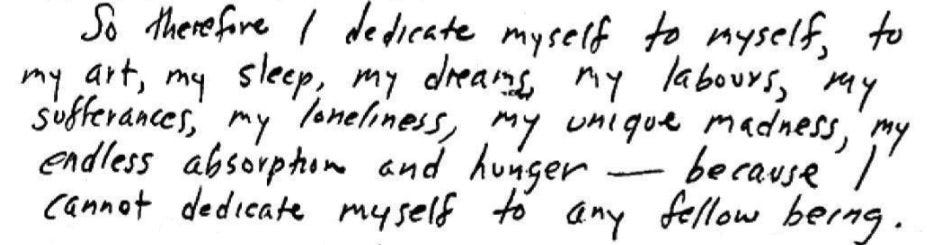 So therefore I dedicate myself to myself, to
my art, my sleep, my dreams, my labours, my
sufferances, my loneliness, my unique madness, my
endless absorption and hunger — because I
cannot dedicate myself to any fellow being.